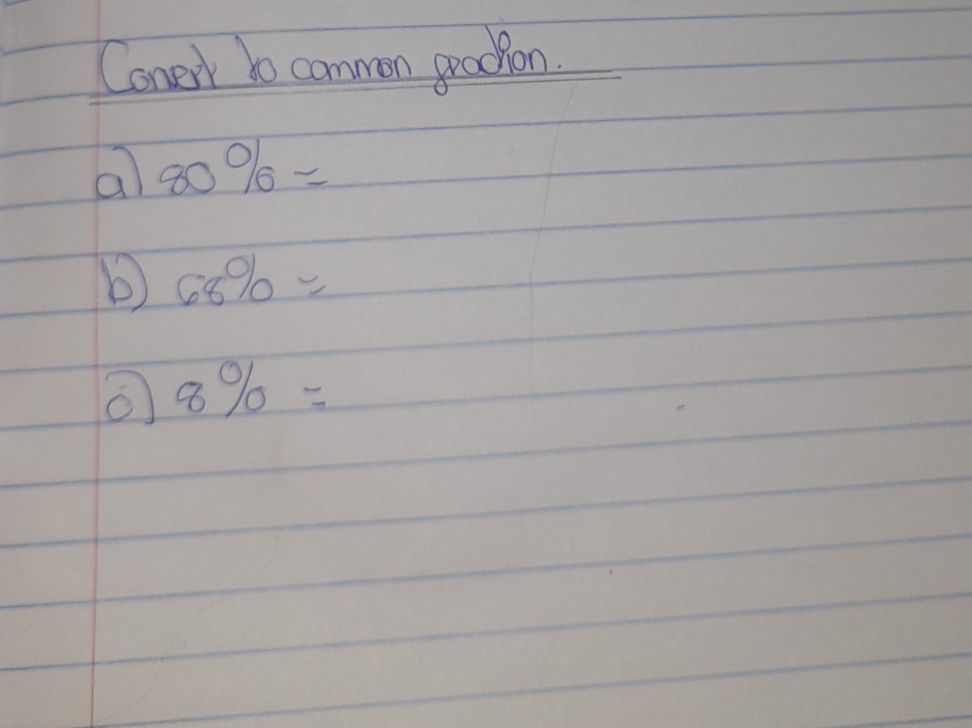 Conert to common graction.
a) 80% =
b) 68% =
c) 8% =